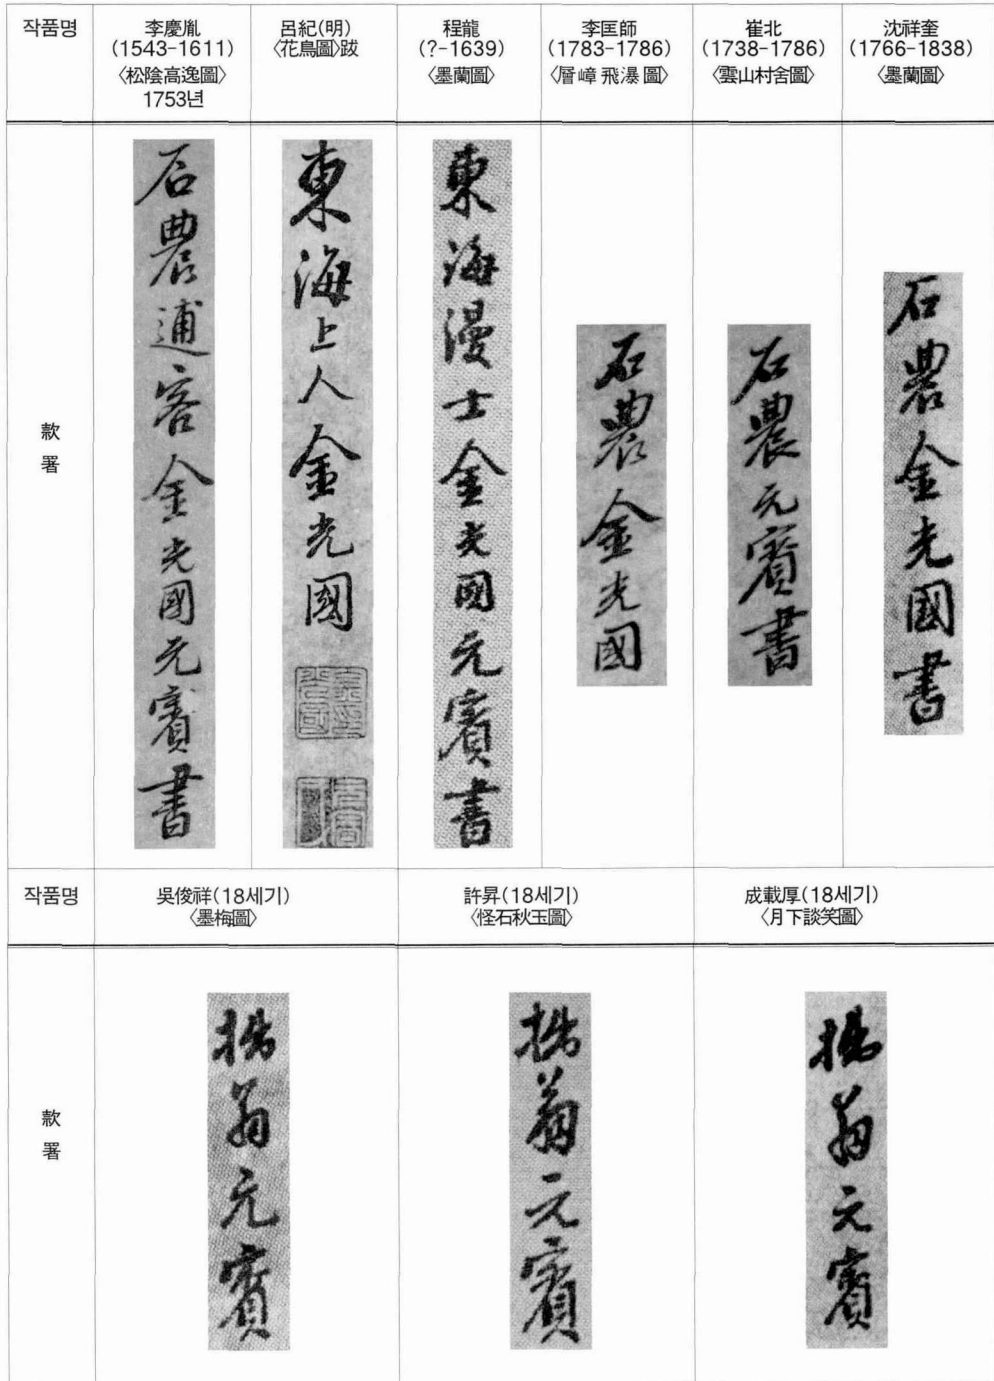 작품명
李慶胤
(1543-1611)
〈松陰高逸圖〉
1753년
呂紀(明)
〈花鳥圖〉跋
程龍
(?-1639)
〈墨蘭圖〉
李匡師
(1783-1786)
〈層嶂飛瀑圖〉
崔北
(1738-1786)
〈雲山村舍圖〉
沈祥奎
(1766-1838)
〈墨蘭圖〉
款
署
石農逋客金光國元賓書
東海上人金光國
東海漫士金光國元賓書
石農金光國
石農元賓書
石農金光國書
작품명
吳俊祥(18세기)
〈墨梅圖〉
許昇(18세기)
〈怪石秋玉圖〉
成載厚(18세기)
〈月下談笑圖〉
款
署
翁元賓
翁元賓
翁元賓